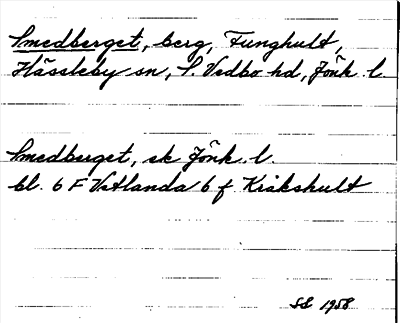 Smedberget, berg, Funghult,
Hässleby sn, S. Vedbo hd, Jönk. l.
Smedberget, ek Jönk. l.
bl. 6 F Vetlanda 6 f Kråkshult
SS 1958